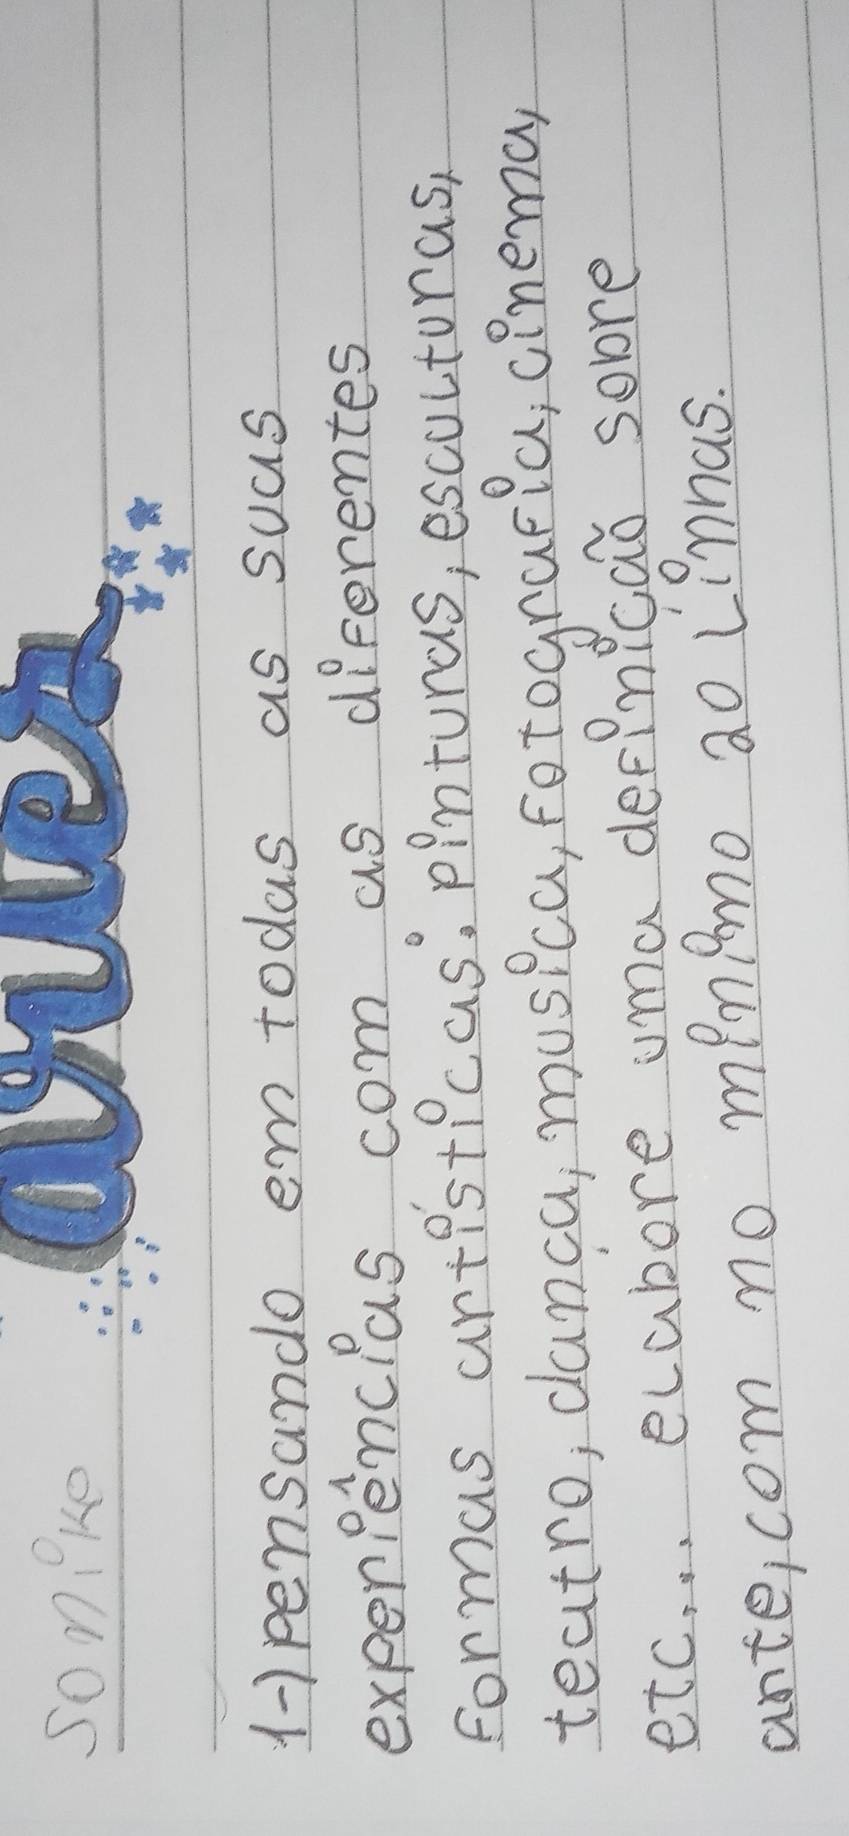 sonike
arte
1-) pensando em todas as suas
experiências com as diferentes
formas artísticas: pinturas, esculturas,
teatro, dança, musica, fotografia, cinema,
etc... elabore uma definição sobre
arte, com no mínimo 20 linhas.